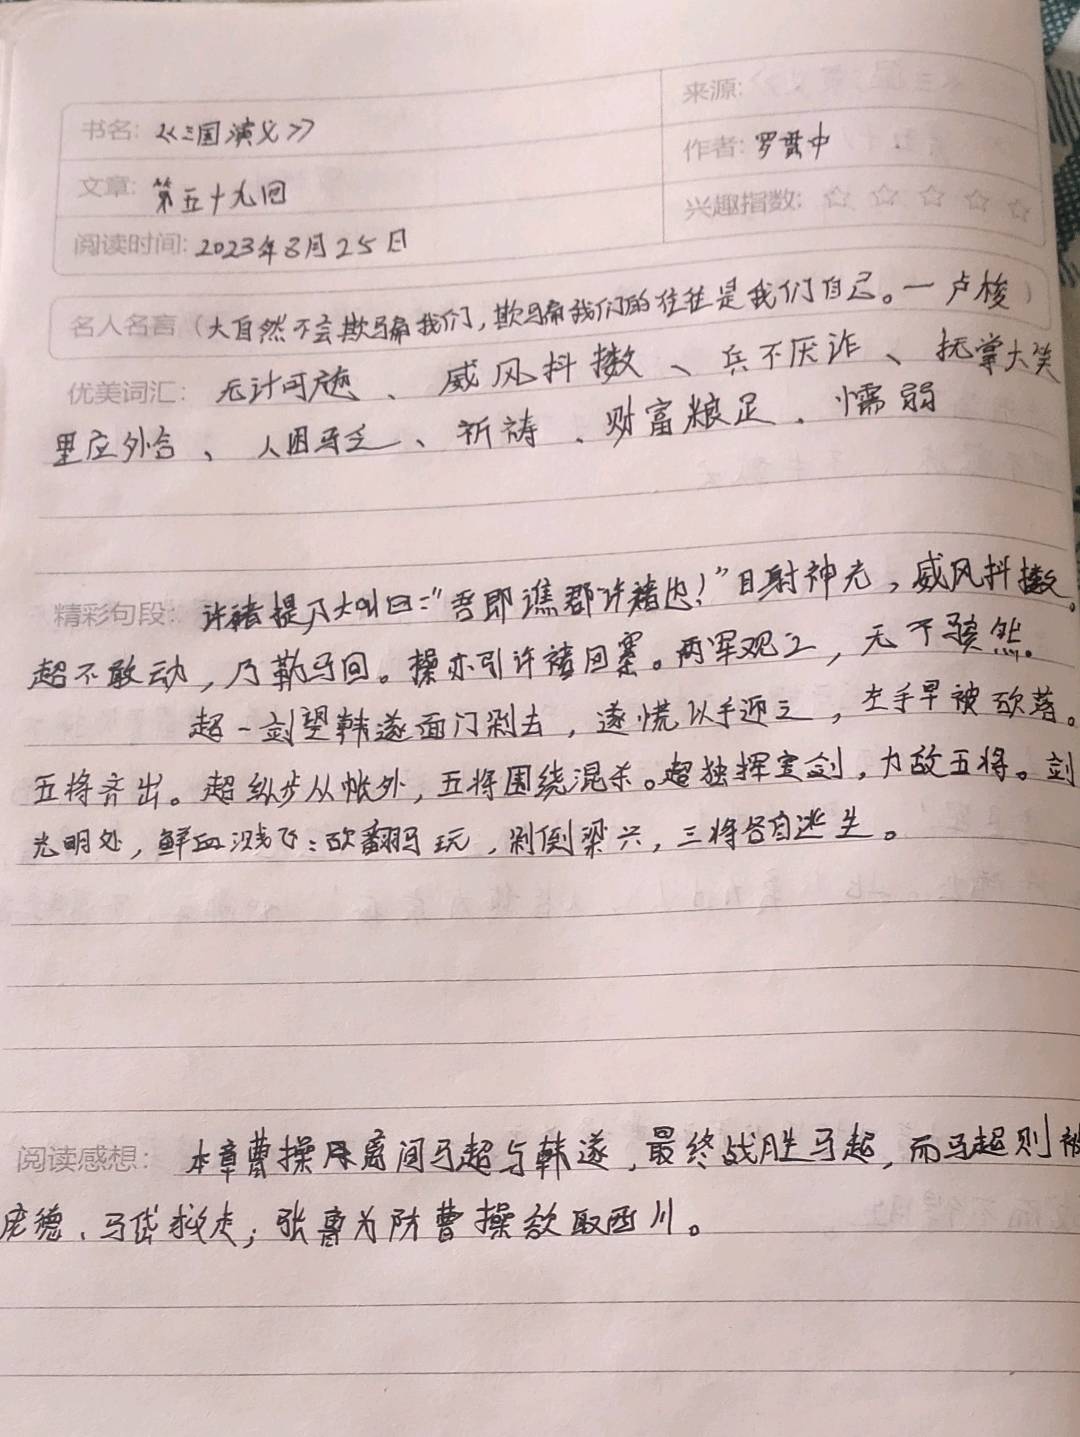 书名: 《三国演义》
来源:
作者: 罗贯中
文章: 第五十九回
兴趣指数: ☆ ☆ ☆ ☆ ☆
阅读时间: 2023年8月25日
名人名言 (大自然不会欺骗我们,欺骗我们的往往是我们自己。一卢梭)
优美词汇: 无计可施、威风抖擞、兵不厌诈、抚掌大笑
里应外合、人困马乏、祈祷、财富粮足、懦弱
精彩句段: 许褚提刀大叫曰:"吾即谯郡许褚也!"目射神光,威风抖擞。
超不敢动,乃勒马回。操亦引许褚回寨。两军观之,无不骇然。
超一剑望韩遂面门剁去,遂慌以手迎之,左手早被砍落。
五将齐出。超纵步从帐外,五将围绕混杀。超独挥宝剑,力敌五将。剑
光明处,鲜血溅飞:砍翻马玩,剁倒梁兴,三将各自逃生。
阅读感想: 本章曹操用离间马超与韩遂,最终战胜马超,而马超则被
庞德、马岱救走;张鲁为防曹操欲取西川。